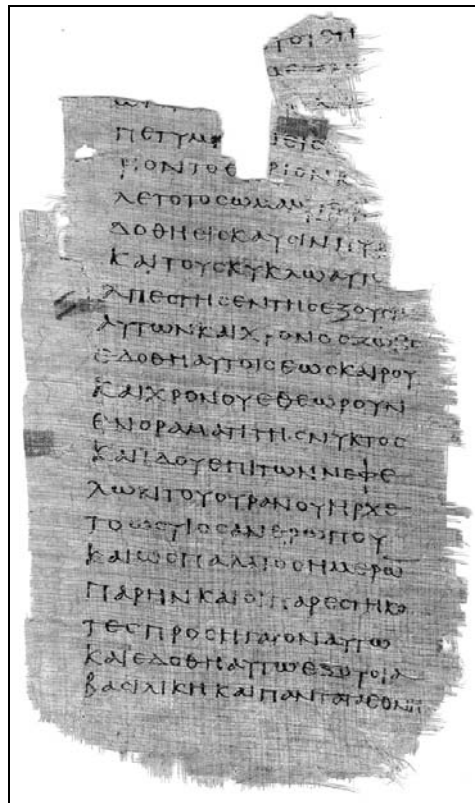 ΤΟΙΣ
ΠΕΤΥΜ
ΡΙΟΝΤΟΘΗΡΙΟΝΚ
ΛΕΤΟΤΟΣΩΜΑΑΥ
ΔΟΘΗΕΙΣΚΑΥΣΙΝΠΥ
ΚΑΙΤΟΥΣΚΥΚΛΩΑΥΤ
ΑΠΕΣΤΗΣΕΝΤΗΣΕΞΟΥΣΙ
ΑΥΤΩΝΚΑΙΧΡΟΝΟΣΖΩΗΣ
ΕΔΟΘΗΑΥΤΟΙΣΕΩΣΚΑΙΡΟΥ
ΚΑΙΧΡΟΝΟΥΕΘΕΩΡΟΥΝ
ΕΝΟΡΑΜΑΤΙΤΗΣΝΥΚΤΟΣ
ΚΑΙΙΔΟΥΕΠΙΤΩΝΝΕΦΕ
ΛΩΝΤΟΥΟΥΡΑΝΟΥΗΡΧΕ
ΤΟΩΣΥΙΟΣΑΝΘΡΩΠΟΥ
ΚΑΙΩΣΠΑΛΑΙΟΣΗΜΕΡΩ
ΠΑΡΗΝΚΑΙΟΙΠΑΡΕΣΤΗΚΟ
ΤΕΣΠΡΟΣΗΓΑΓΟΝΑΥΤΩ
ΚΑΙΕΔΟΘΗΑΥΤΩΕΞΟΥΣΙΑ
ΒΑΣΙΛΙΚΗΚΑΙΠΑΝΤΑΤΑΕΘΝΗ